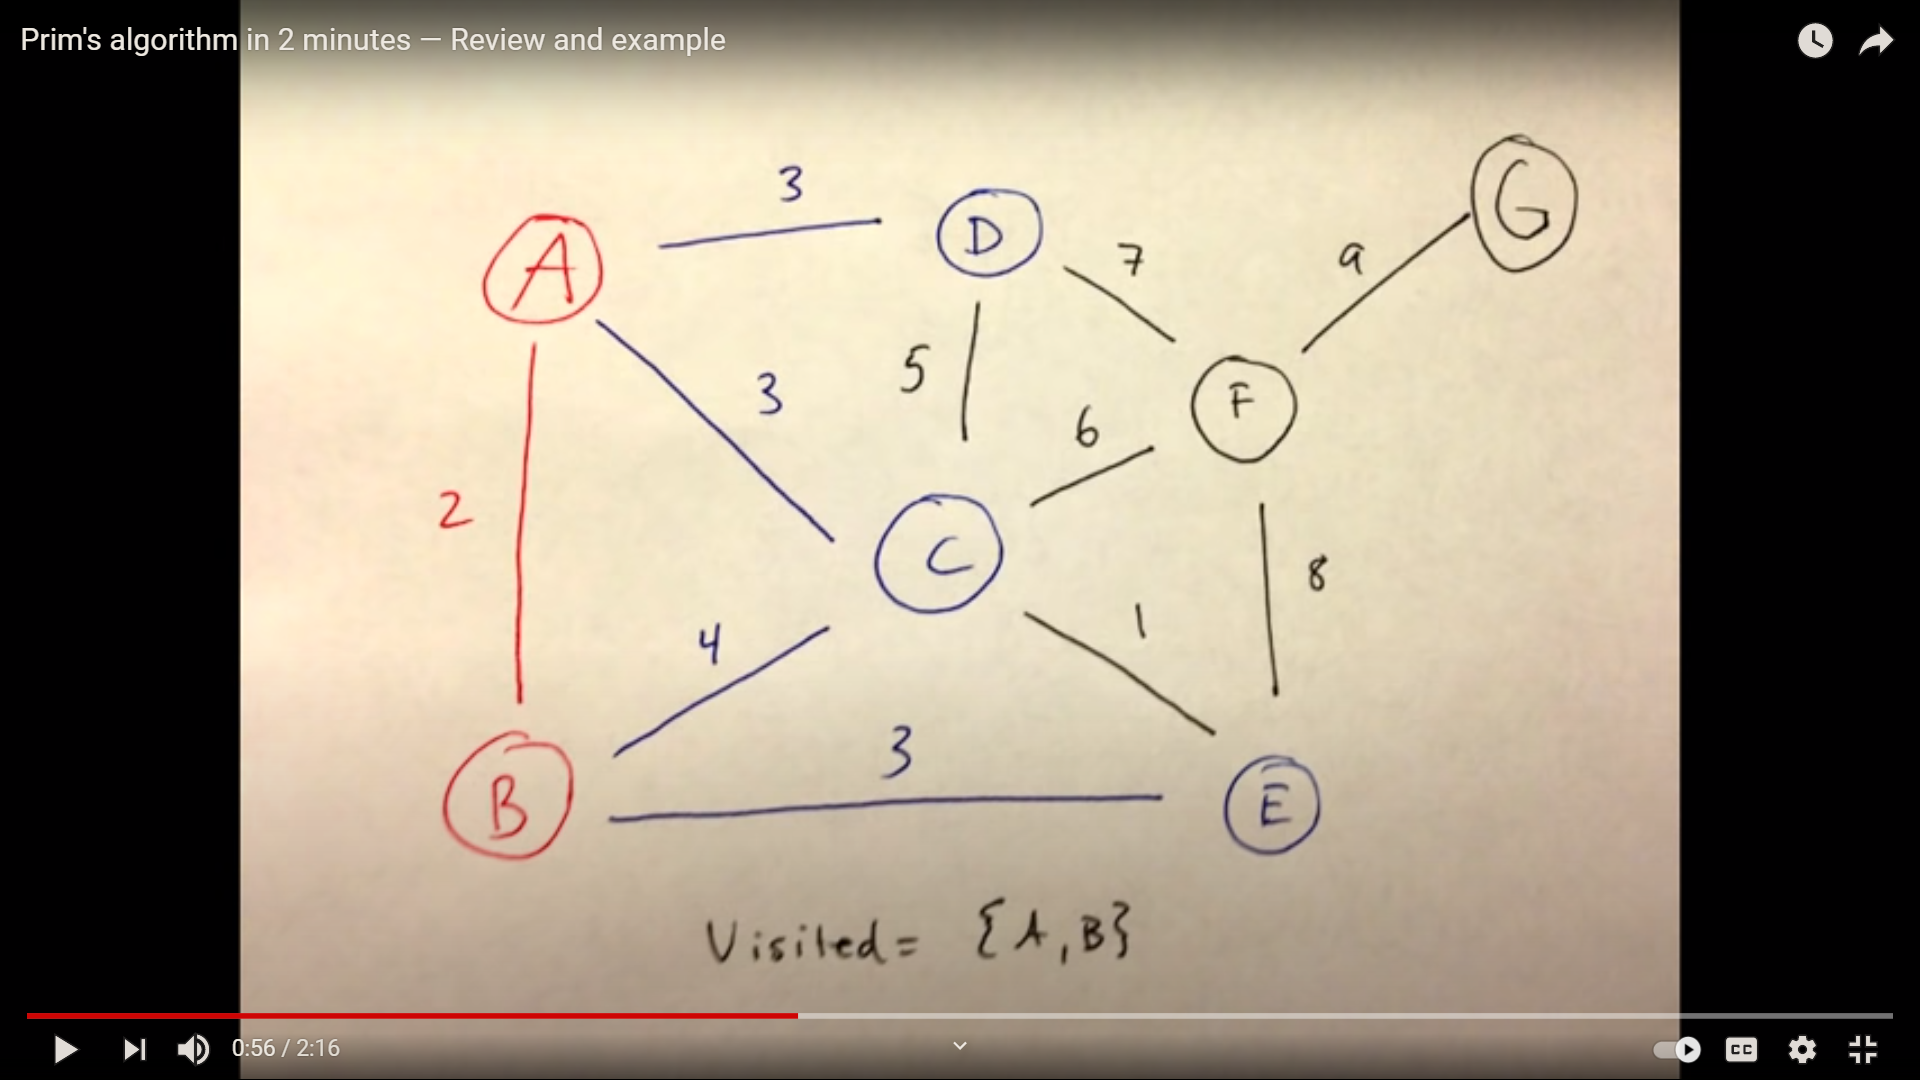 Prim's algorithm in 2 minutes — Review and example
3
G
A
D
7
9
3
5
F
6
2
C
8
4
1
3
B
E
Visited = {A, B}
0:56 / 2:16
CC